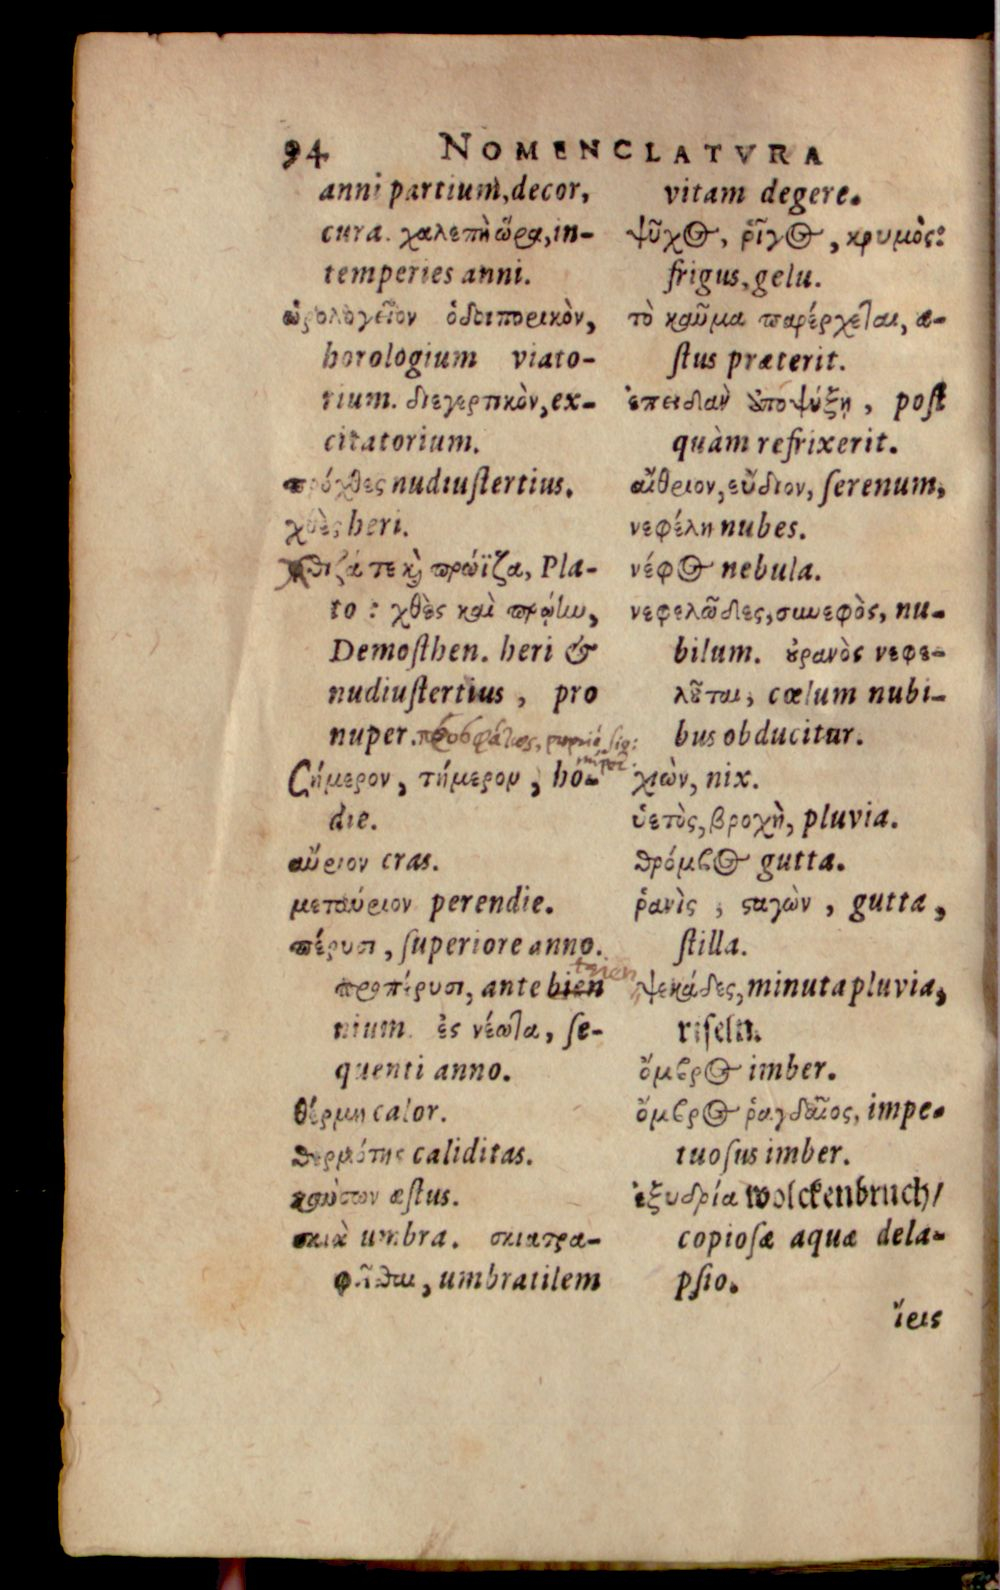 94 NOMENCLATVRA
anni partium, decor,
cura. χαλεπὴ ὥρα, in-
temperies anni.
ὡρολογεῖον ὁδοιποεικὸν,
horologium viato-
rium. διεγερτικὸν, ex-
citatorium.
πρόχθες nudiustertius.
χθὲς heri.
χθιζά τε κὶ πρώϊζα, Pla-
to: χθὲς καὶ πρῴην,
Demosthen. heri &
nudiustertius, pro
nuper. προσφάτως,
σήμερον, τήμερον, ho-
die.
αὔριον cras.
μεταύριον perendie.
πέρυσι, superiore anno.
προπέρυσι, ante bien
nium. ἐς νέωτα, se-
quenti anno.
θέρμη calor.
θερμότης caliditas.
καύσων æstus.
σκιὰ umbra. σκιατρα-
φεῖσθαι, umbratilem
vitam degere.
ψῦχος, ῥῖγος, κρυμὸς:
frigus, gelu.
τὸ καῦμα παρέρχεται, æ-
stus præterit.
ἐπειδιὰν ὑποψύξῃ, post
quàm refrixerit.
αἴθριον, εὔδιον, serenum,
νεφέλη nubes.
νέφος nebula.
νεφελῶδες, συννεφὸς, nu-
bilum. οὐρανὸς νεφε-
λεῖται, cœlum nubi-
bus obducitur.
χιὼν, nix.
ὑετὸς, βροχὴ, pluvia.
θρόμβος gutta.
ῥανὶς, σταγὼν, gutta,
stilla.
ψεκάδες, minuta pluvia,
riseln.
ὄμβρος imber.
ὄμβρος ῥαγδαῖος, impe-
tuosus imber.
ἐξυδρία wolckenbruch/
copiosæ aquæ dela-
psio.
ὕεις